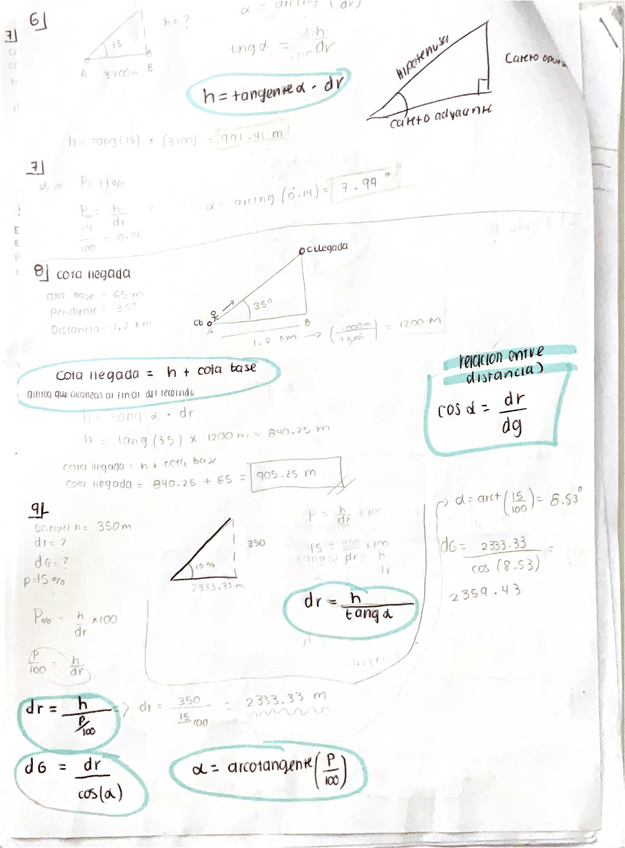 6]
h = ?
15
A
B
3700m
tng α = h/dr
h = tangente α · dr
hipotenusa
Cateto adyacente
h = tang(15) x (3700) = 991.41 m
7]
P = 14%
P% = h/dr
14/100 = 0.14
α = arctng (0.14) = 7.99°
8] cota llegada
cota base = 65 m
Pendiente = 35°
Distancia = 1,2 km
C. llegada
35°
Cb
A
B
1.2 km → (1000m/1km) = 1200 m
Cota llegada = h + cota base
altitud que alcanzas al final del recorrido
h = tang α · dr
h = tang (35) x 1200 m = 840.25 m
cota llegada = h + cota base
cota llegada = 840.25 + 65 = 905.25 m
relacion entre
distancia)
cos α = dr/dg
9]
Disnivel h = 350m
dr = ?
dG = ?
p = 15%
350
15%
2333.33 m
P = h/dr x100
dr = h/tang α
α = arct (15/100) = 8.53°
dG = 2333.33/cos (8.53) =
2359.43
P% = h/dr x100
P/100 = h/dr
dr = h/P/100 => dr = 350/15/100 = 2333.33 m
dG = dr/cos(α)
α = arcotangente (P/100)